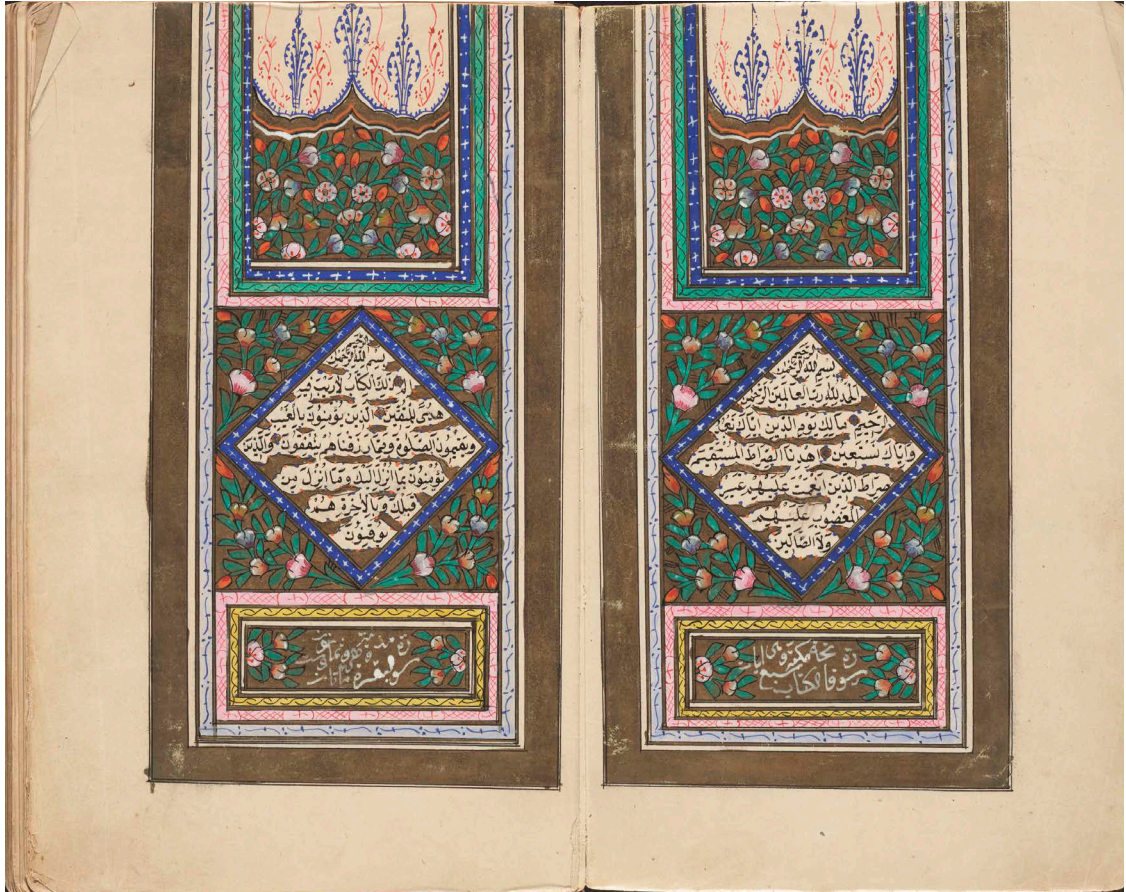 الرحيم
بسم الله الرحمن
الحمد لله رب العالمين الرحمن
الرحيم مالك يوم الدين اياك نعبد
واياك نستعين اهدنا الصراط المستقيم
صراط الذين انعمت عليهم غير
المغضوب عليهم
ولا الضالين
سورة فاتحة الكتاب مكية وهي سبع ايات
الرحيم
بسم الله الرحمن
الم ذلك الكتاب لا ريب فيه
هدى للمتقين الذين يؤمنون بالغيب
ويقيمون الصلوة ومما رزقناهم ينفقون والذين
يؤمنون بما انزل اليك وما انزل من
قبلك وبالاخرة هم
يوقنون
سورة بقرة